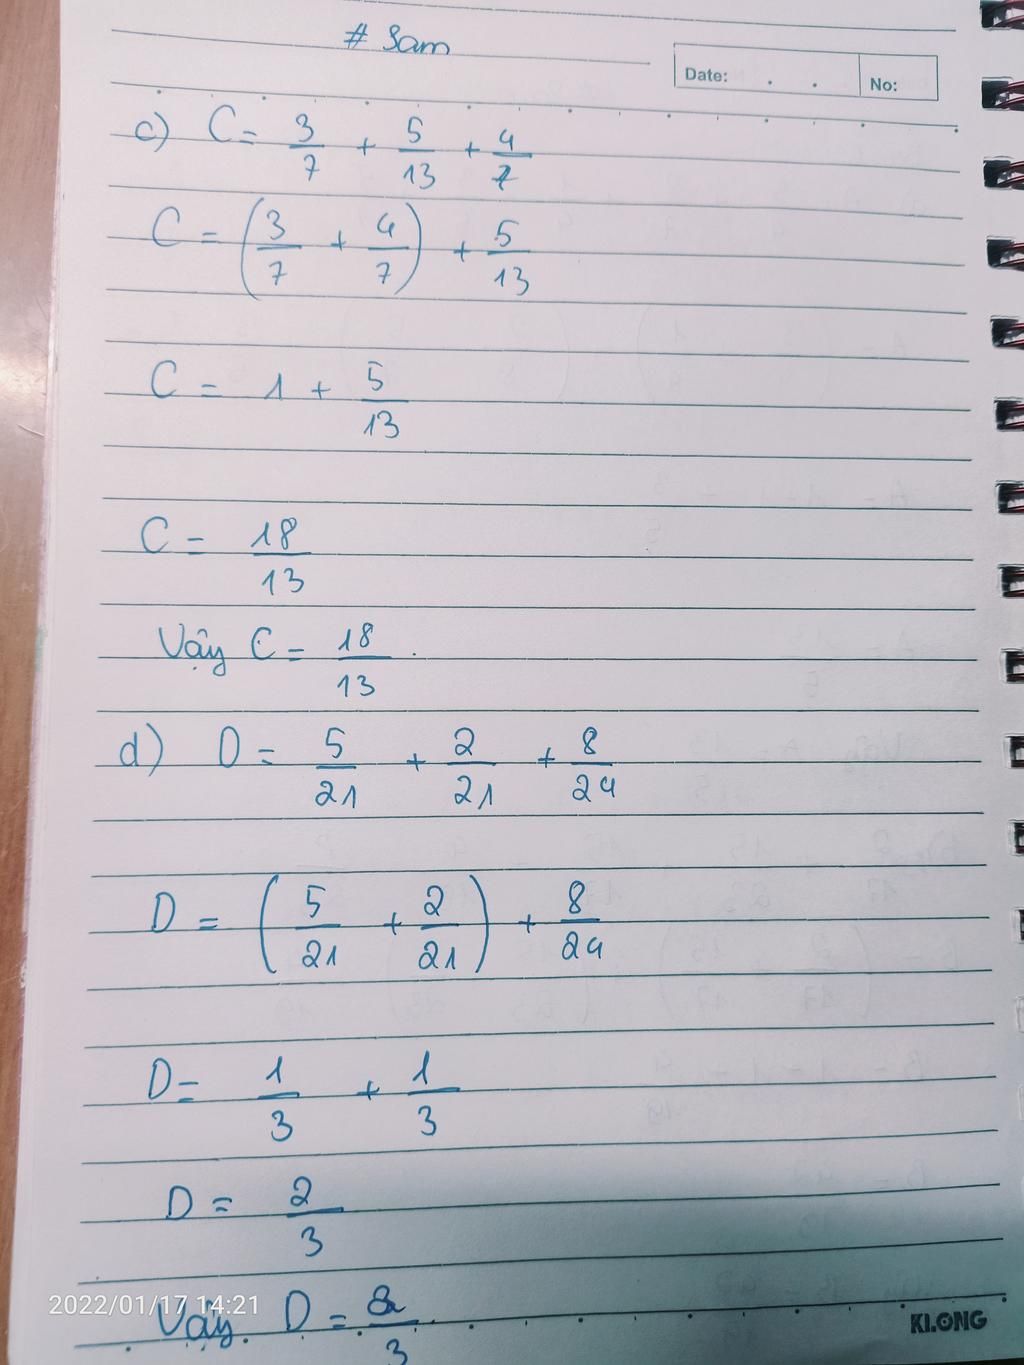 # Sam
Date: . . No:
c) C = 3/7 + 5/13 + 4/7
C = (3/7 + 4/7) + 5/13
C = 1 + 5/13
C = 18/13
Vậy C = 18/13.
d) D = 5/21 + 2/21 + 8/24
D = (5/21 + 2/21) + 8/24
D = 1/3 + 1/3
D = 2/3
Vậy D = 2/3.
2022/01/17 14:21
KLONG